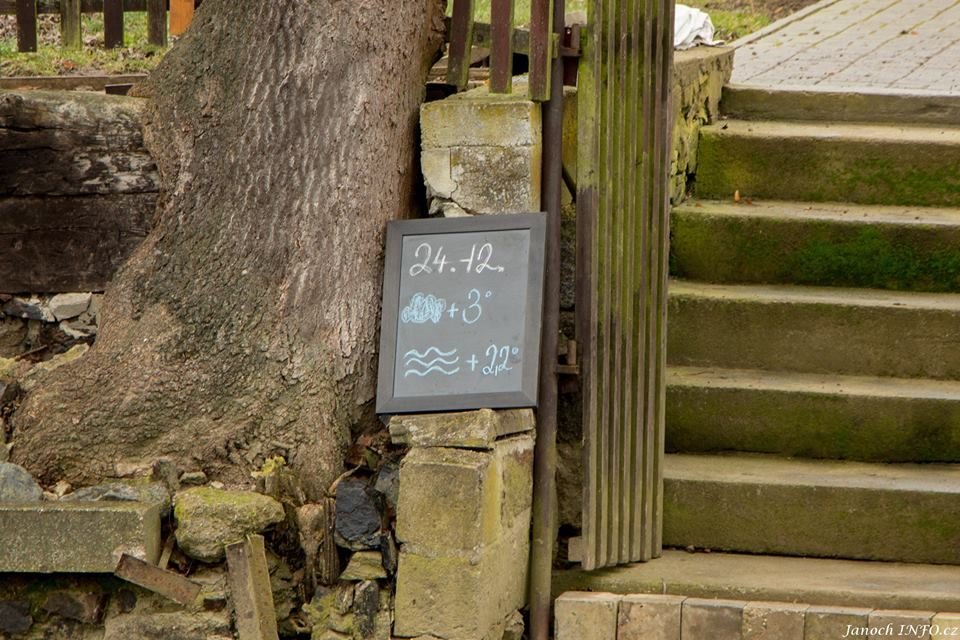 24.12.
+3°
+2,2°
Janoch INFO.cz